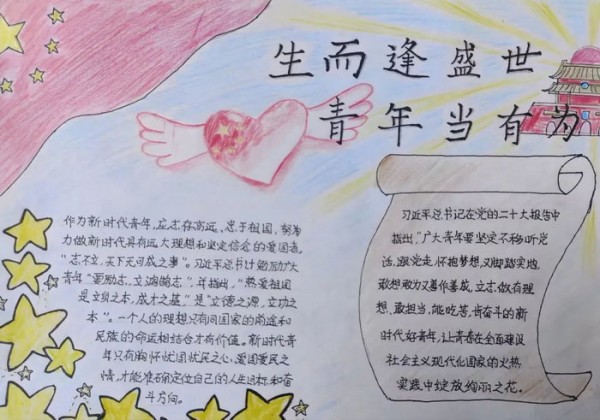 生而逢盛世
青年当有为
作为新时代青年,应志存高远、忠于祖国,努力
力做新时代具有远大理想和坚定信念的爱国者。
"志不立,天下无可成之事"。习近平总书记勉励广大
青年"要励志,立鸿鹄志"。并指出,"热爱祖国
是立身之本,成才之基,"是"立德之源,立功之
本"。一个人的理想只有同国家的前途和
民族的命运相结合才有价值。新时代青
年只有胸怀忧国忧民之心、爱国爱民之
情,才能准确定位自己的人生目标和奋
斗方向。
习近平总书记在党的二十大报告中
指出,"广大青年要坚定不移听党
话、跟党走,怀抱梦想又脚踏实地,
敢想敢为又善作善成,立志做有理
想、敢担当、能吃苦、肯奋斗的新
时代好青年,让青春在全面建设
社会主义现代化国家的火热
实践中绽放绚丽之花。